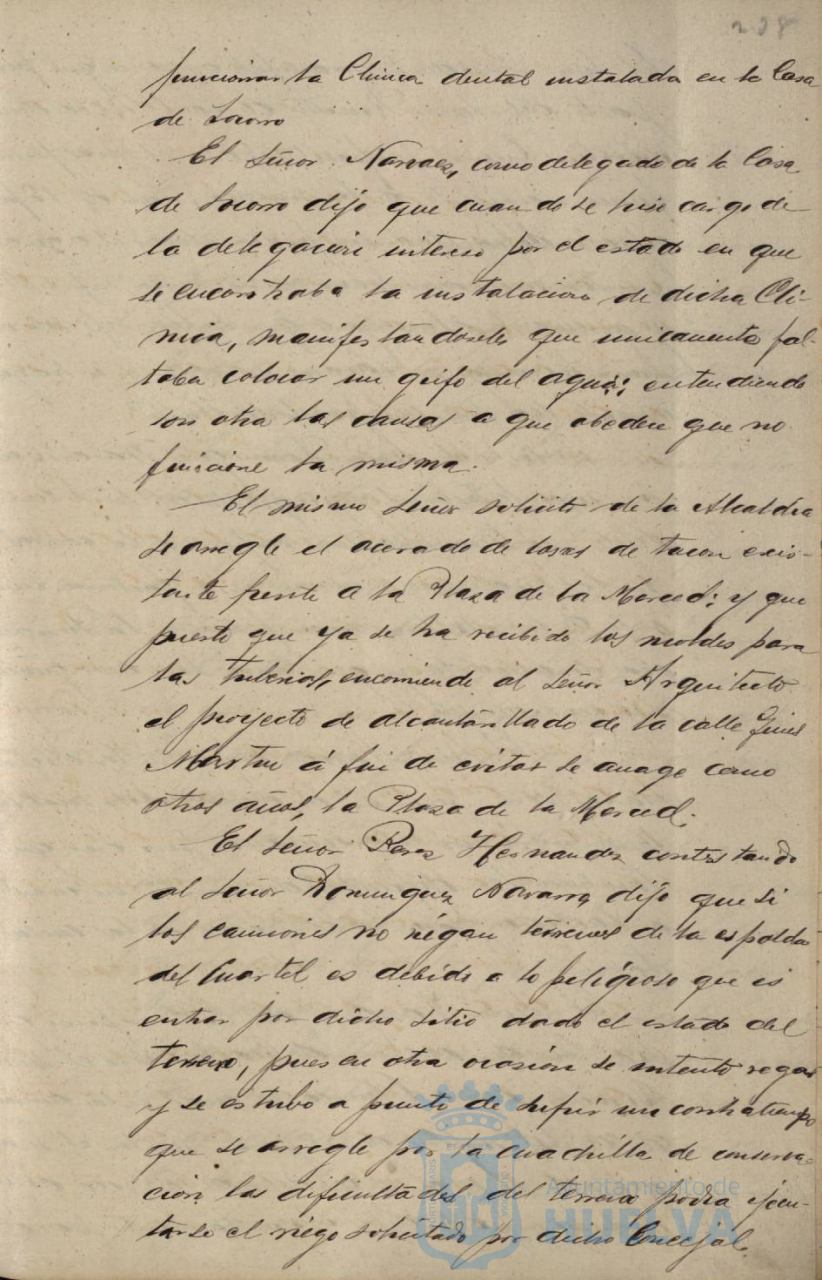 funcionar la Clinica dental instalada en la Casa
de Socorro
El Señor Narvaez, como delegado de la Casa
de Socorro dijo que cuando se hiso cargo de
la delegacion intereso por el estado en que
se encontraba la instalacion de dicha Cli-
nica, manifestandosele que unicamente fal-
taba colocar un grifo del agua; entendiendo
son otra las causas a que obedece que no
funcione la misma.
El mismo Señor solicito de la Alcaldia
se arregle el acerado de losas de tacon exis-
tente frente a la Plaza de la Merced; y que
puesto que ya se ha recibido los moldes para
las tuberias, encomiende al Señor Arquitecto
el proyecto de alcantarillado de la calle Gines
Martin á fin de evitar se anage como
otros años, la Plaza de la Merced.
El Señor Perez Hernandez contestando
al Señor Dominguez Navarro, dijo que si
los camiones no riegan terrenos de la espalda
del Cuartel es debido a lo peligroso que es
entrar por dicho sitio dado el estado del
terreno, pues en otra ocasión se intento regar
y se estubo a punto de sufrir un contratiempo
que se arregle por la cuadrilla de conserva-
cion las dificultades del terreno podra ejecu-
tarse el riego solicitado por dicho Concejal.
Ayuntamiento de
HUELVA